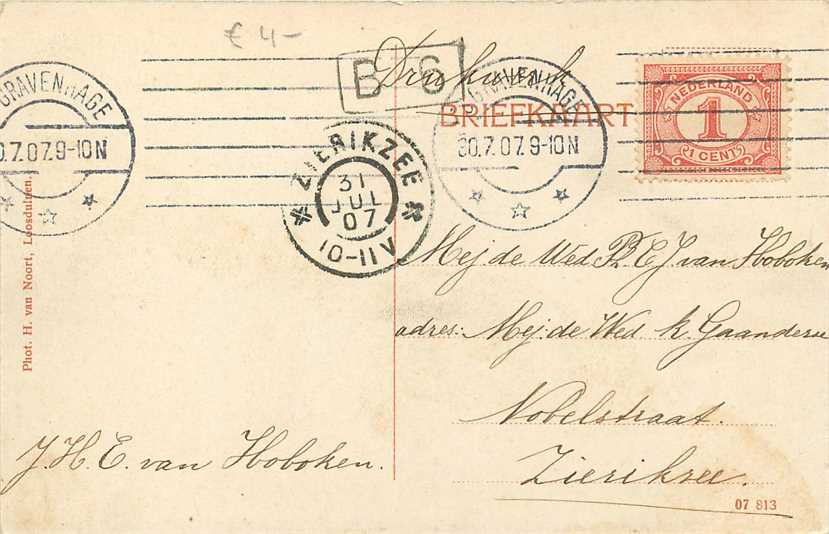 € 4-
Drukwerk
B 6
GRAVENHAGE
30.7.07.9-10N
GRAVENHAGE
0.7.07.9-10N
BRIEFKAART
NEDERLAND
1
1 CENT
ZIERIKZEE
31
JUL
07
10-11V
Mej de Wed P E J van Hoboken
adres: Mej: de Wed k Gaanderse
Nobelstraat.
Zieriksee.
J. H. E. van Hoboken.
Phot. H. van Noort, Loosduinen
07 813